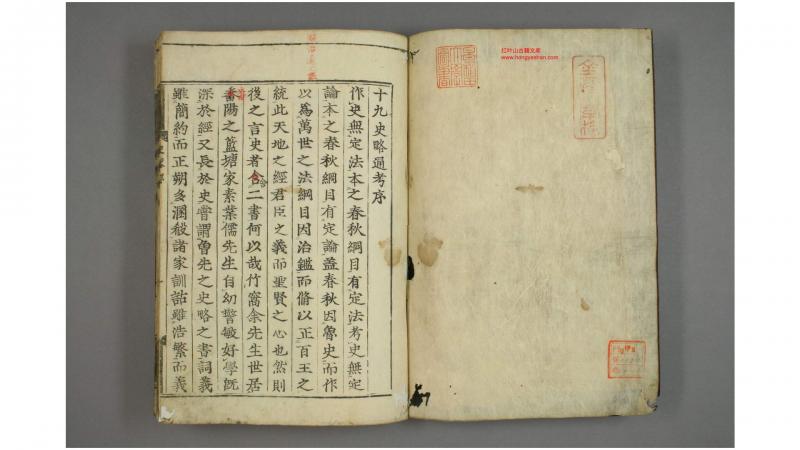 红叶山古籍文库
www.hongyeshan.com
十九史略通考序
作史無定法本之春秋綱目有定法考史無定
論本之春秋綱目有定論盖春秋因魯史而作
以爲萬世之法綱目因治鑑而脩以正百王之
統此天地之經君臣之義而聖賢之心也然則
後之言史者舍二書何以哉竹窩余先生世居
番陽之籃塘家素業儒先生自幼警敏好學旣
深於經又長於史嘗謂魯先之史略之書詞義
雖簡約而正朔多溷殽諸家訓詁雖浩繁而義